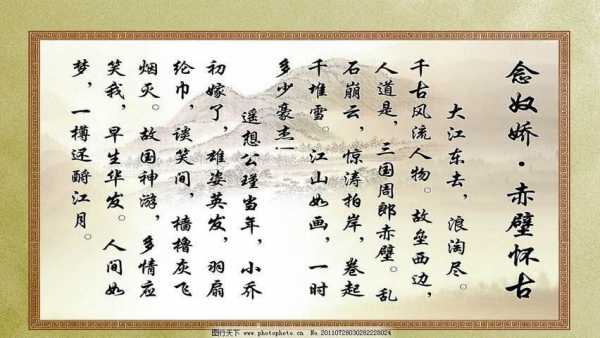 念奴娇·赤壁怀古
大江东去，浪淘尽。
千古风流人物。故垒西边，
人道是，三国周郎赤壁。乱
石崩云，惊涛拍岸，卷起
千堆雪。江山如画，一时
多少豪杰！
遥想公瑾当年，小乔
初嫁了，雄姿英发，羽扇
纶巾，谈笑间，樯橹灰飞
烟灭。故国神游，多情应
笑我，早生华发。人间如
梦，一樽还酹江月。
图行天下 www.photophoto.cn No.20110728030282228024